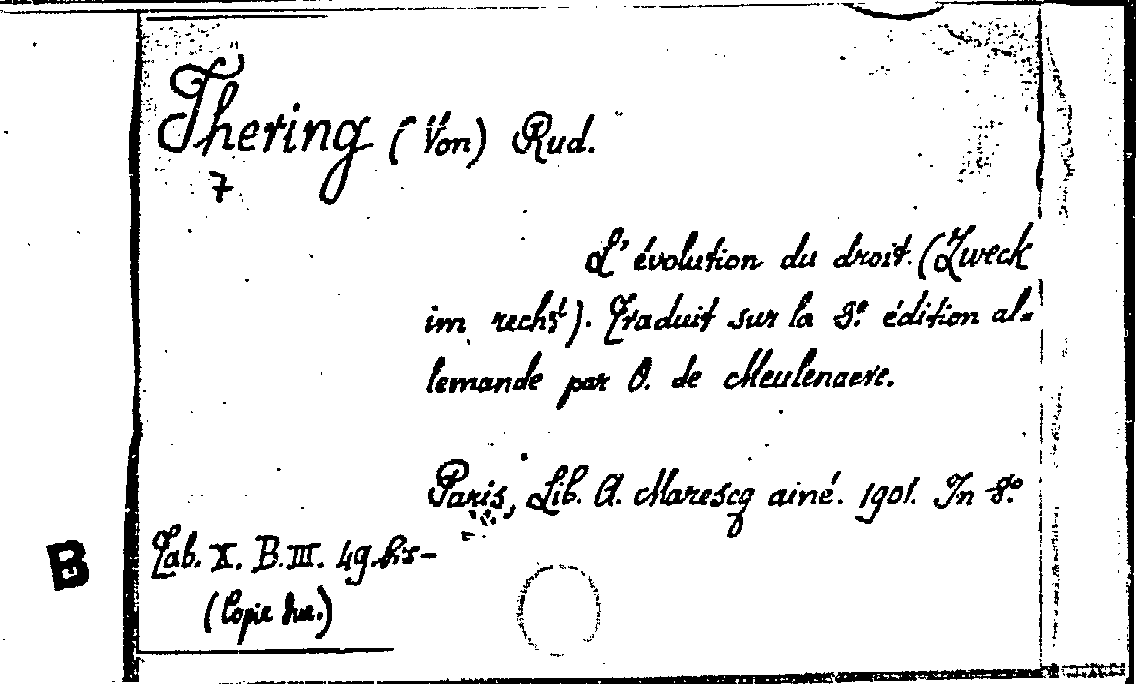 Jhering (Von) Rud.
7
L'évolution du droit. (Zweck
im recht). Traduit sur la 3e. édition al-
lemande par O. de Meulenaere.
Paris, Lib. A. Marescq ainé. 1901. In 8.o
B
Tab. X. B.III. 49.bis-
(Copie